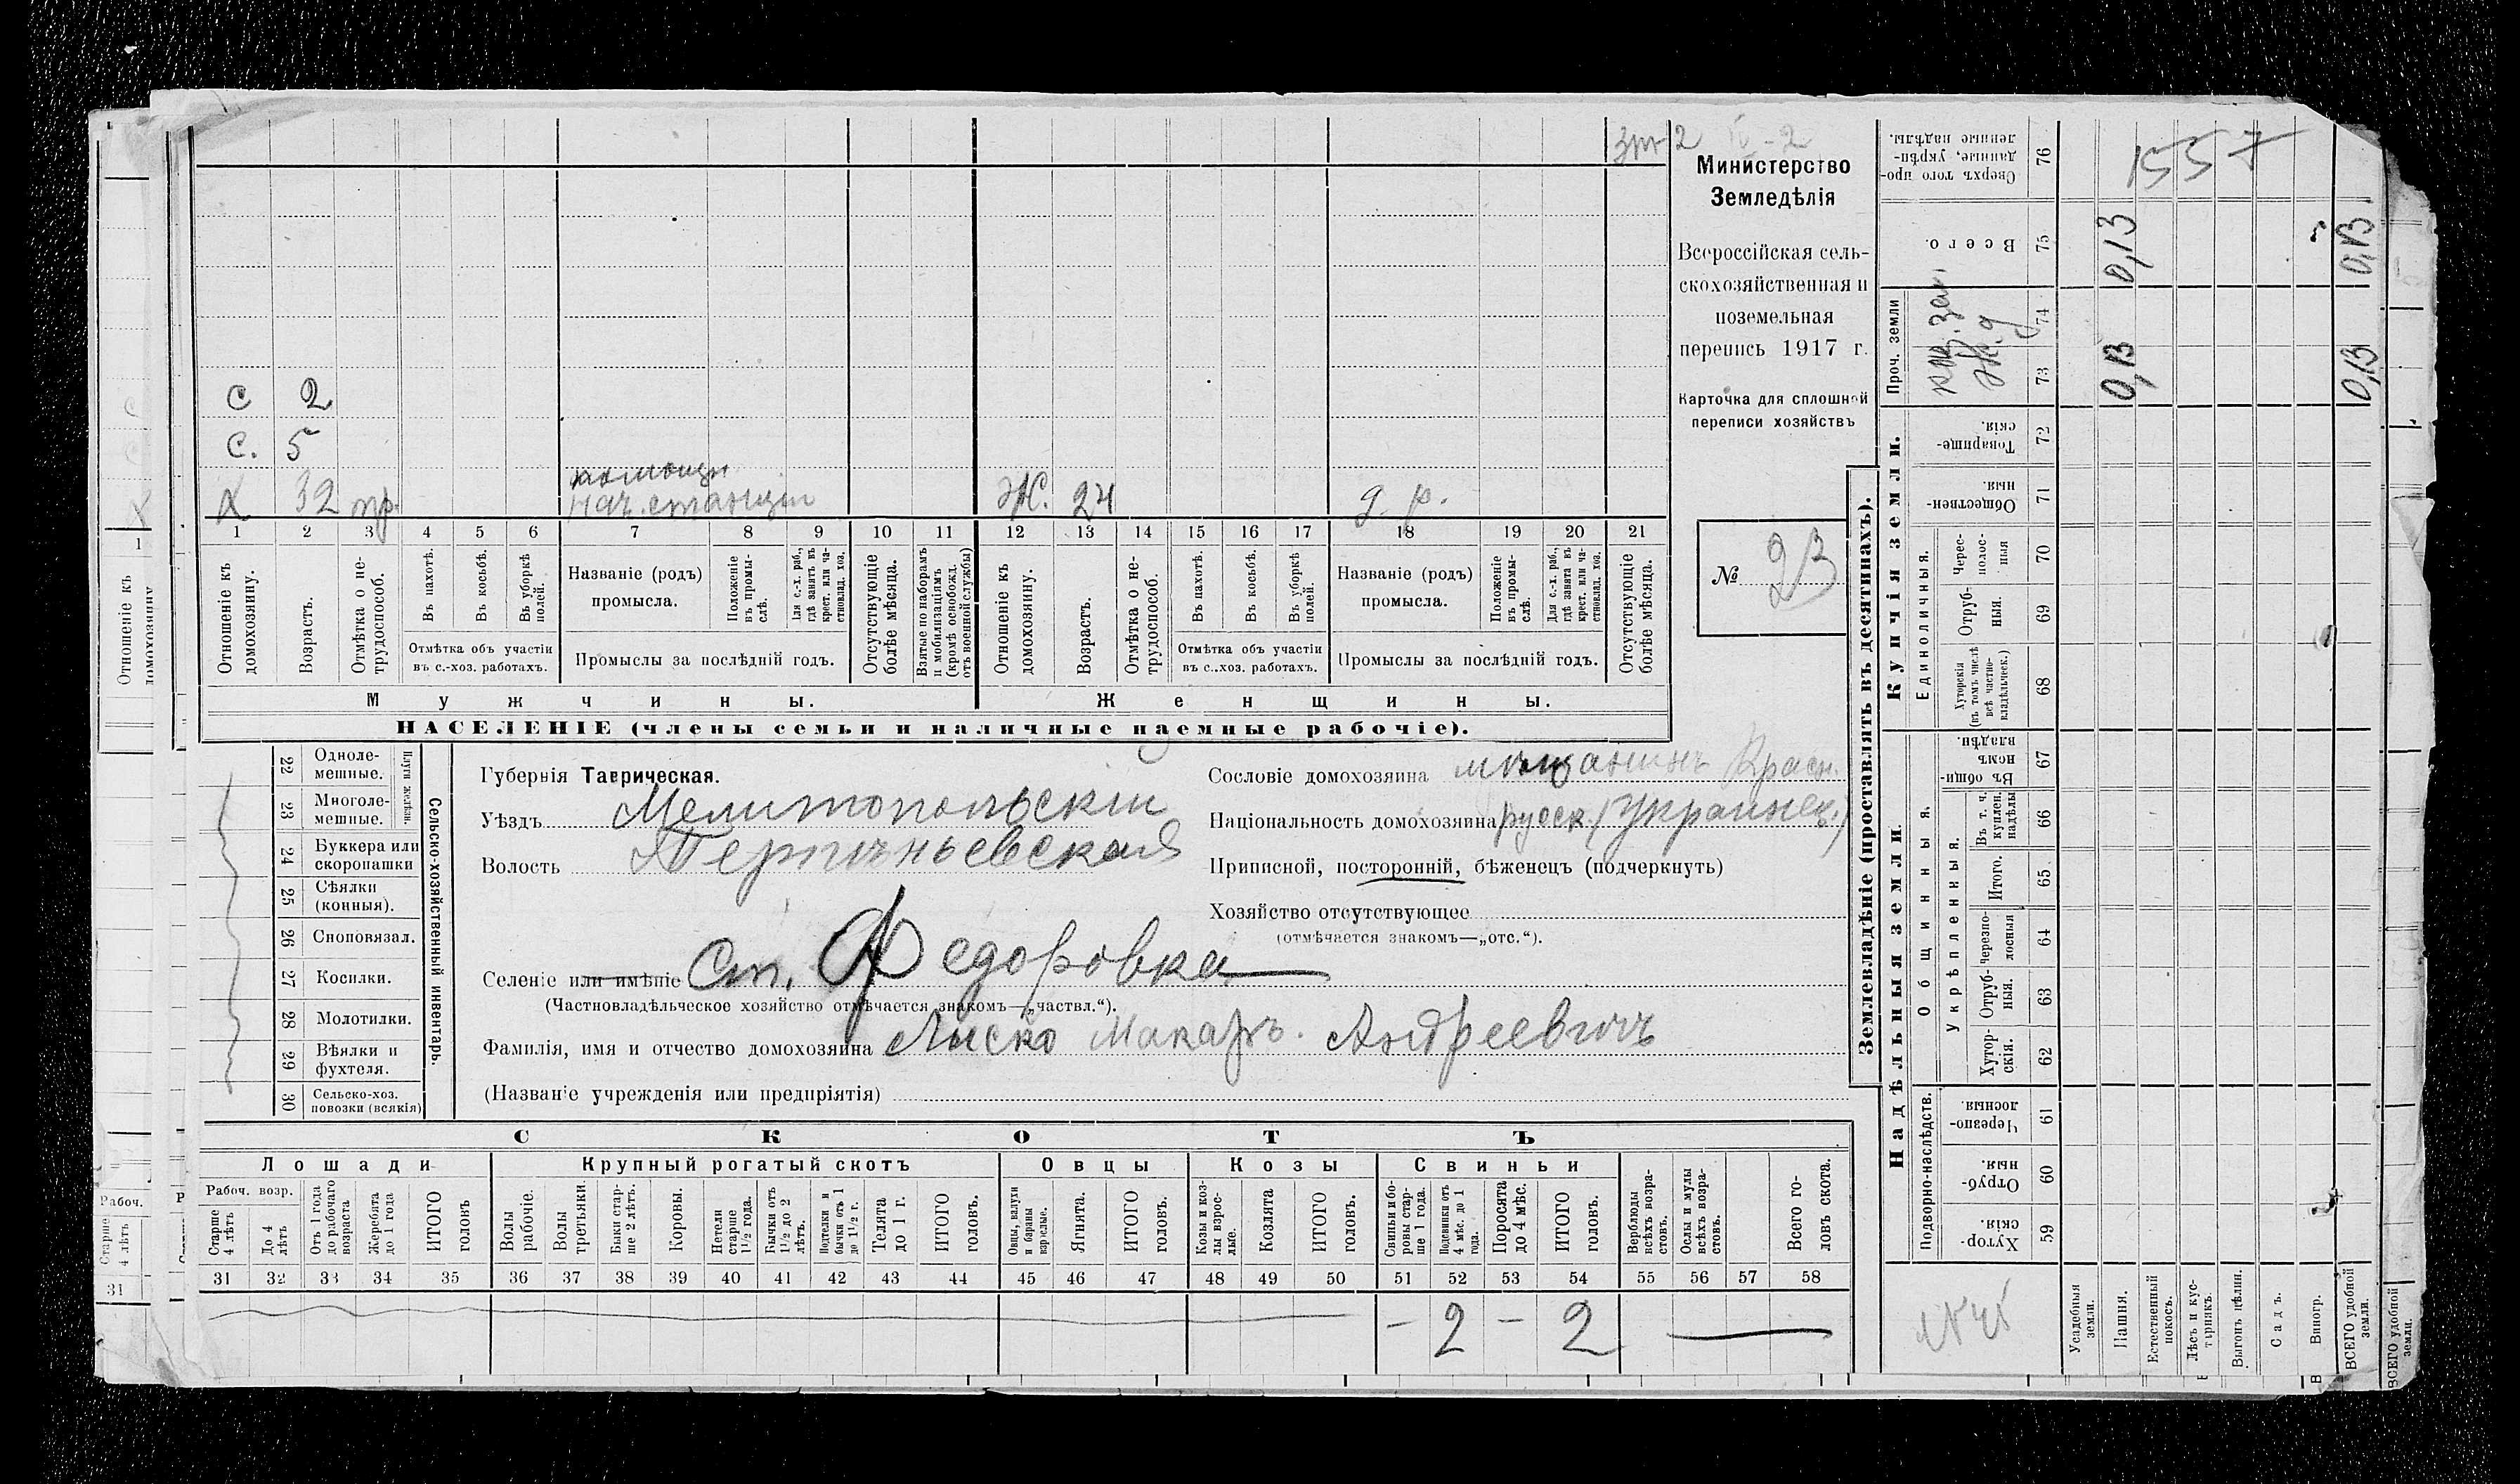 зм-2 IV-2
Министерство
Земледѣлія
Всероссійская сель-
скохозяйственная и
поземельная
перепись 1917 г.
Карточка для сплошной
переписи хозяйствъ
№ 23
с 2
с. 5
х 32 пр. помощн
нач. станціи Ж. 24 д. р.
1 2 3 4 5 6 7 8 9 10 11 12 13 14 15 16 17 18 19 20 21
Отношеніе къ домохозяину.
Возрастъ.
Отмѣтка о не-трудоспособ.
Въ пахотѣ.
Въ косьбѣ.
Въ уборкѣ полей.
Отмѣтка объ участіи
въ с.-хоз. работахъ.
Названіе (родъ)
промысла.
Положеніе въ промы-слѣ.
Для с.-х. раб., гдѣ занятъ въ крест. или ча-стновлад. хоз.
Промыслы за послѣдній годъ.
Отсутствующіе болѣе мѣсяца.
Взятые по наборамъ и мобилизаціямъ (кромѣ освобожд. отъ военной службы)
Отношеніе къ домохозяину.
Возрастъ.
Отмѣтка о не-трудоспособ.
Въ пахотѣ.
Въ косьбѣ.
Въ уборкѣ полей.
Отмѣтка объ участіи
въ с..хоз. работахъ.
Названіе (родъ)
промысла.
Положеніе въ промы-слѣ.
Для с.-х. раб., гдѣ занята въ крест. или ча-стновлад. хоз.
Промыслы за послѣдній годъ.
Отсутствующіе болѣе мѣсяца.
Мужчины. Женщины.
НАСЕЛЕНІЕ (члены семьи и наличные наемные рабочіе).
Сельско-хозяйственный инвентарь.
Плуги желѣзн.
22 Одноле-мешные.
23 Многоле-мешные.
24 Буккера или скоропашки
25 Сѣялки (конныя).
26 Сноповязал.
27 Косилки.
28 Молотилки.
29 Вѣялки и фухтеля.
30 Сельско-хоз. повозки (всякія)
Губернія Таврическая.
Уѣздъ Мелитопольскій
Волость
Селеніе или имѣніе Ст. Федоровка
(Частновладѣльческое хозяйство отмѣчается знакомъ—„частвл.“).
Фамилія, имя и отчество домохозяина Лыско Макаръ Андреевичъ
(Названіе учрежденія или предпріятія)
Сословіе домохозяина мѣщанинъ Красн.
Національность домохозяина русск. (Украинец.)
Приписной, посторонній, бѣженецъ (подчеркнуть)
Хозяйство отсутствующее
(отмѣчается знакомъ—„отс.“).
СКОТЪ
Лошади Крупный рогатый скотъ Овцы Козы Свиньи
Рабоч. возр.
Старше 4 лѣтъ
До 4 лѣтъ
Отъ 1 года до рабочаго возраста
Жеребята до 1 года
ИТОГО головъ
Волы рабочіе.
Волы третьяки.
Быки стар-ше 2 лѣтъ.
Коровы.
Нетели старше 1½ года.
Бычки отъ 1½ до 2 лѣтъ.
Подтелки и бычки отъ 1 до 1½ г.
Телята до 1 г.
ИТОГО головъ.
Овцы, валухи и бараны взрослые.
Ягнята.
ИТОГО головъ.
Козы и коз-лы взрос-лые.
Козлята
ИТОГО головъ.
Свиньи и бо-ровы стар-ше 1 года.
Подсвинки отъ 4 мѣс. до 1 года.
Поросята до 4 мѣс.
ИТОГО головъ.
Верблюды всѣхъ возра-стовъ.
Ослы и мулы всѣхъ возра-стовъ.
Всего го-ловъ скота.
31 32 33 34 35 36 37 38 39 40 41 42 43 44 45 46 47 48 49 50 51 52 53 54 55 56 57 58
– 2 – 2 —
Землевладѣніе (проставлять въ десятинахъ).
Надѣльныя земли.
Купчія земли.
Проч. земли
Подворно-наслѣдств.
Общинныя.
Укрѣпленныя.
Единоличныя.
Хутор-скія. 59
Отруб-ныя. 60
Черезпо-лосныя. 61
Хутор-скія. 62
Отруб-ныя. 63
черезпо-лосныя 64
Итого. 65
Въ т. ч. куплен. надѣлы 66
Въ общи-номъ владѣн. 67
Хуторскія (въ томъ числѣ всѣ частно-владѣльческ.) 68
Отруб-ныя. 69
Черес-полос-ныя 70
Обществен-ныя. 71
Товарище-скія. 72
73
74
Всего. 75
Сверхъ того про-данные, укрѣп-ленные надѣлы. 76
ж. д
0,13 0,13
0,13 0,13
1557
Усадебныя земли.
Пашня.
Естественный покосъ.
Лѣсъ и кус-тарникъ.
Выгонъ цѣлин.
Садъ.
Виногр.
ВСЕГО удобной земли.
ВСЕГО удобной земли.
Отношеніе къ домохозяину
1
х
Рабоч.
Старше 4 лѣтъ
31